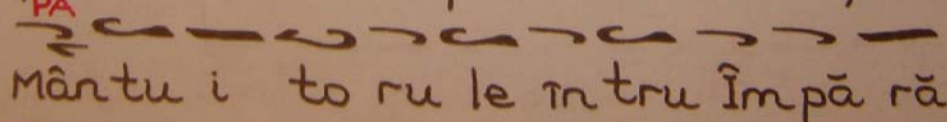 PA
Mântu i to ru le în tru Împă ră